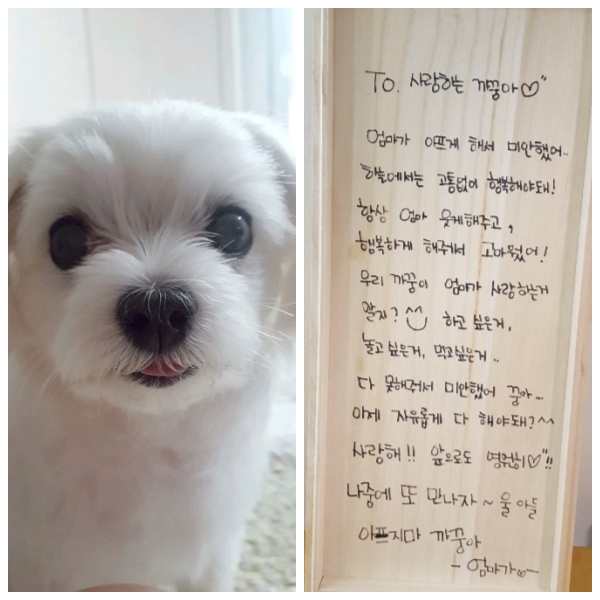 To. 사랑하는 까꿍아♡"
엄마가 아프게 해서 미안했어..
하늘에서는 고통없이 행복해야돼!
항상 엄마 웃게해주고,
행복하게 해줘서 고마웠어!
우리 까꿍이 엄마가 사랑하는거
알지? ^^ 하고싶은거,
놀고싶은거, 먹고싶은거..
다 못해줘서 미안했어 꿍아...
이제 자유롭게 다 해야돼? ^^
사랑해!! 앞으로도 영원히♡"!!
나중에 또 만나자~ 울아들
아프지마 까꿍아
- 엄마가∞-